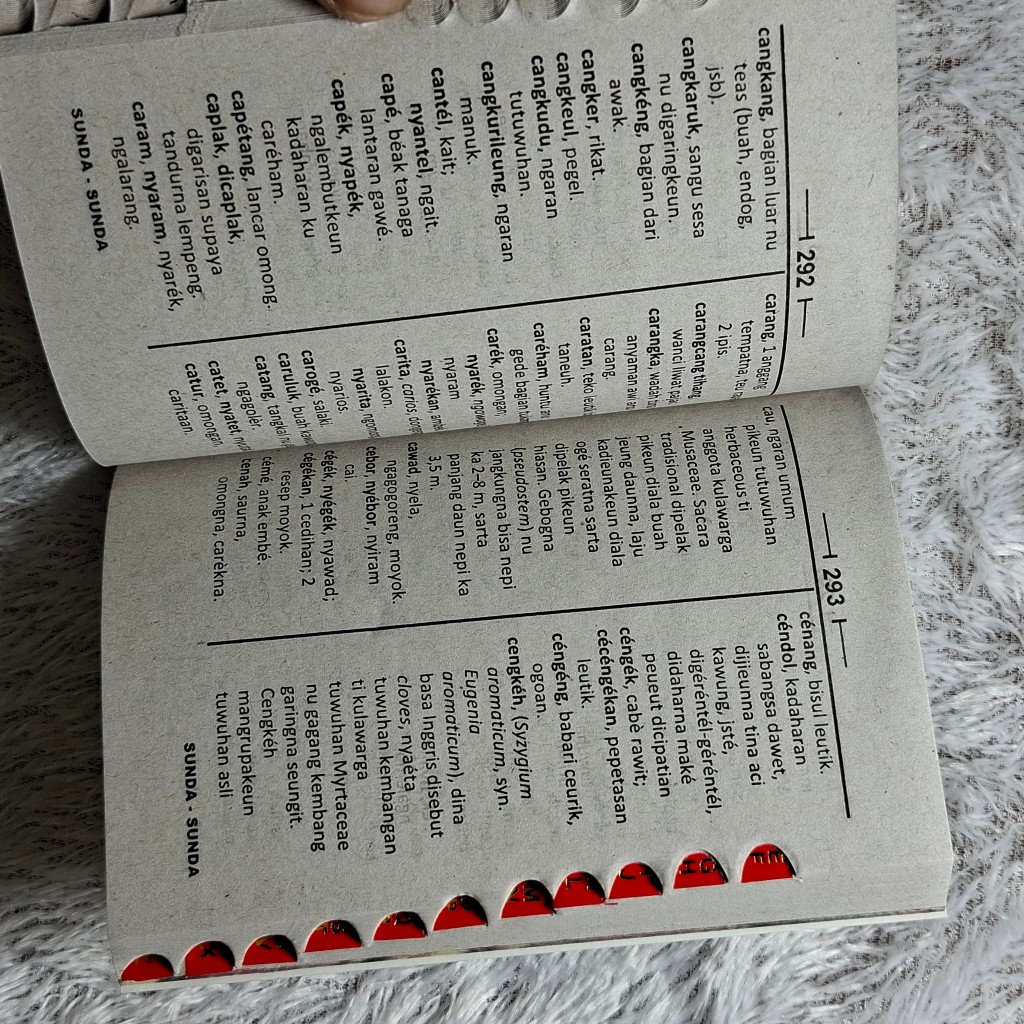 292
cangkang, bagian luar nu
teas (buah, endog,
jsb).
cangkaruk, sangu sesa
nu digaringkeun.
cangkéng, bagian dari
awak.
cangker, rikat.
cangkeul, pegel.
cangkudu, ngaran
tutuwuhan.
cangkurileung, ngaran
manuk.
cantél, kait;
nyantel, ngait.
capé, béak tanaga
lantaran gawé.
capék, nyapék,
ngalembutkeun
kadaharan ku
caréham.
capétang, lancar omong.
caplak, dicaplak,
digarisan supaya
tandurna lempeng.
caram, nyaram, nyarék,
ngalarang.
carang, 1 anggang
tempatna, teu
2 ipis.
carangcang tihang
wanci liwat
carangka, wadah
anyaman awi
carang.
caratan, teko,
taneuh.
caréham, huntu
gede bagian
carék, omongan
nyarék,
nyaram
nyarékan,
carita, carios,
lalakon.
nyarita,
nyarios.
carogé, salaki.
caruluk, buah
catang, tangkal
ngagoler.
catet, nyatet,
catur, omongan
caritaan.
SUNDA - SUNDA
293
cau, ngaran umum
pikeun tutuwuhan
herbaceous ti
anggota kulawarga
Musaceae. Sacara
tradisional dipelak
pikeun diala buah
jeung daunna, laju
kadieunakeun diala
ogé seratna sarta
dipelak pikeun
hiasan. Gebogna
(pseudostem) nu
jangkungna bisa nepi
ka 2-8 m, sarta
panjang daun nepi ka
3,5 m.
cawad, nyela,
ngagogoreng, moyok.
cebor, nyébor, nyiram
cai.
cégék, nyégék, nyawad;
cégékan, 1 cedihan; 2
resep moyok.
cémé, anak embé.
cenah, saurna,
omongna, carékna.
cénang, bisul leutik.
céndol, kadaharan
sabangsa dawet,
dijieunna tina aci
kawung, jsté,
digéréntél-géréntél,
didaharna maké
peueut dicipatian
céngék, cabé rawit;
cécéngékan, pepetasan
leutik.
céngéng, babari ceurik,
ogoan.
cengkéh, (Syzygium
aromaticum, syn.
Eugenia
aromaticum), dina
basa Inggris disebut
cloves, nyaéta
tuwuhan kembangan
ti kulawarga
tuwuhan Myrtaceae
nu gagang kembang
garingna seungit.
Cengkéh
mangrupakeun
tuwuhan asli
SUNDA - SUNDA
E
F
G
H
J
L
M